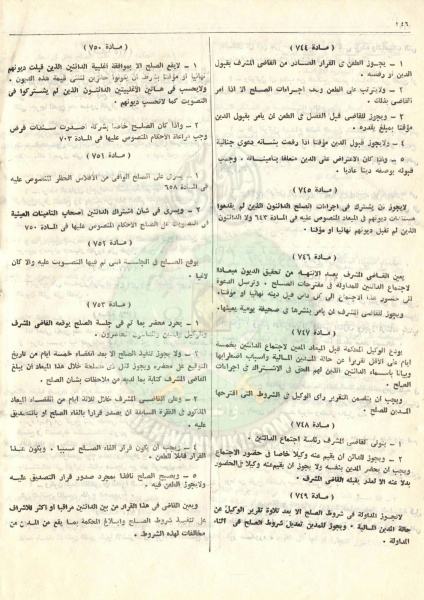 ١٤٦
( مادة ٧٤٤ )
١ – يجوز الطعن فى القرار الصادر من القاضى المشرف بقبول
الدين أو رفضه .
٢ – ولايترتب على الطعن وقف اجراءات الصلح الا اذا أمر
القاضى بذلك .
ويجوز للقاضى قبل الفصل فى الطعن أن يأمر بقبول الدين
مؤقتا بمبلغ يقدره .
٤ – ولايجوز قبول الدين مؤقتا اذا رفعت بشأنه دعوى جنائية
٥ – واذا كان الاعتراض على الدين متعلقا بتأميناته ، وجب
قبوله بوصفه دينا عاديا .
( مادة ٧٤٥ )
لايجوز أن يشترك فى اجراءات الصلح الدائنون الذين لم يقدموا
مستندات ديونهم فى الميعاد المنصوص عليه فى المادة ٦٤٣ ولا الدائنون
الذين لم تقبل ديونهم نهائيا أو مؤقتا .
( مادة ٧٤٦ )
يعين القاضى المشرف بعد الانتهاء من تحقيق الديون ميعادا
لاجتماع الدائنين للمداولة فى مقترحات الصلح ، وترسل الدعوة
الى حضور هذا الاجتماع الى كل دائن قبل دينه نهائيا أو مؤقتا .
ويجوز للقاضى المشرف أن يأمر بنشرها فى صحيفة يومية يعينها .
( مادة ٧٤٧ )
يودع الوكيل المحكمة قبل الميعاد المعين لاجتماع الدائنين بخمسة
أيام على الأقل تقريرا عن حالة المدين المالية وأسباب اضطرابها
وبيانا بأسماء الدائنين الذين لهم الحق فى الاشتراك فى اجراءات
الصلح .
ويجب أن يتضمن التقرير رأى الوكيل فى الشروط التى اقترحها
المدين للصلح .
( مادة ٧٤٨ )
١ – يتولى القاضى المشرف رئاسة اجتماع الدائنين .
٢ – ويجوز للدائن أن يقيم عنه وكيلا خاصا فى حضور الاجتماع
ويجب أن يحضر المدين بنفسه ولا يجوز أن يقيم عنه وكيلا فى الحضور
بدلا عنه الا لعذر يقبله القاضى المشرف .
( مادة ٧٤٩ )
لاتجوز المداولة فى شروط الصلح الا بعد تلاوة تقرير الوكيل عن
حالة المدين المالية . ويجوز للمدين تعديل شروط الصلح فى أثناء
المداولة .
( مادة ٧٥٠ )
١ – لايقع الصلح الا بموافقة أغلبية الدائنين الذين قبلت ديونهم
نهائيا أو مؤقتا بشرط أن يكونوا حائزين لثلثى قيمة هذه الديون .
ولايحسب فى هاتين الأغلبيتين الدائنون الذين لم يشتركوا فى
التصويت كما لاتحسب ديونهم .
٢ – واذا كان الصلح خاصا بشركة أصدرت سندات قرض
وجب مراعاة الأحكام المنصوص عليها فى المادة ٧٠٣
( مادة ٧٥١ )
١ – يسرى على الصلح الواقى من الافلاس الحظر المنصوص عليه
فى المادة ٦٥٨
٢ – ويسرى فى شأن اشتراك الدائنين أصحاب التأمينات العينية
فى التصويت على الصلح الأحكام المنصوص عليها فى المادة ٧٥٠
( مادة ٧٥٢ )
يوقع الصلح فى الجلسة التى تم فيها التصويت عليه والا كان
لاغيا .
( مادة ٧٥٣ )
١ – يحرر محضر بما تم فى جلسة الصلح يوقعه القاضى المشرف
والوكيل والمدين والدائنون الحاضرون .
٢ – ولا يجوز تنفيذ الصلح الا بعد انقضاء خمسة أيام من تاريخ
التوقيع على محضره ويجوز لكل ذى مصلحة خلال هذا الميعاد أن يبلغ
القاضى المشرف كتابة بما لديه من ملاحظات بشأن الصلح .
٣ – وعلى القاضى المشرف خلال ثلاثة أيام من انقضاء الميعاد
المذكور فى الفقرة السابقة أن يصدر قرارا بالغاء الصلح أو بالتصديق
عليه .
٤ – ويجب أن يكون قرار الغاء الصلح مسببا . ويكون هذا
القرار قابلا للطعن فيه .
٥ – ويصبح الصلح نافذا بمجرد صدور قرار التصديق عليه
ولايجوز الطعن فيه .
ويعين القاضى فى هذا القرار من بين الدائنين مراقبا أو أكثر للاشراف
على تنفيذ شروط الصلح وابلاغ المحكمة بما يقع من المدين من
مخالفات لهذه الشروط .